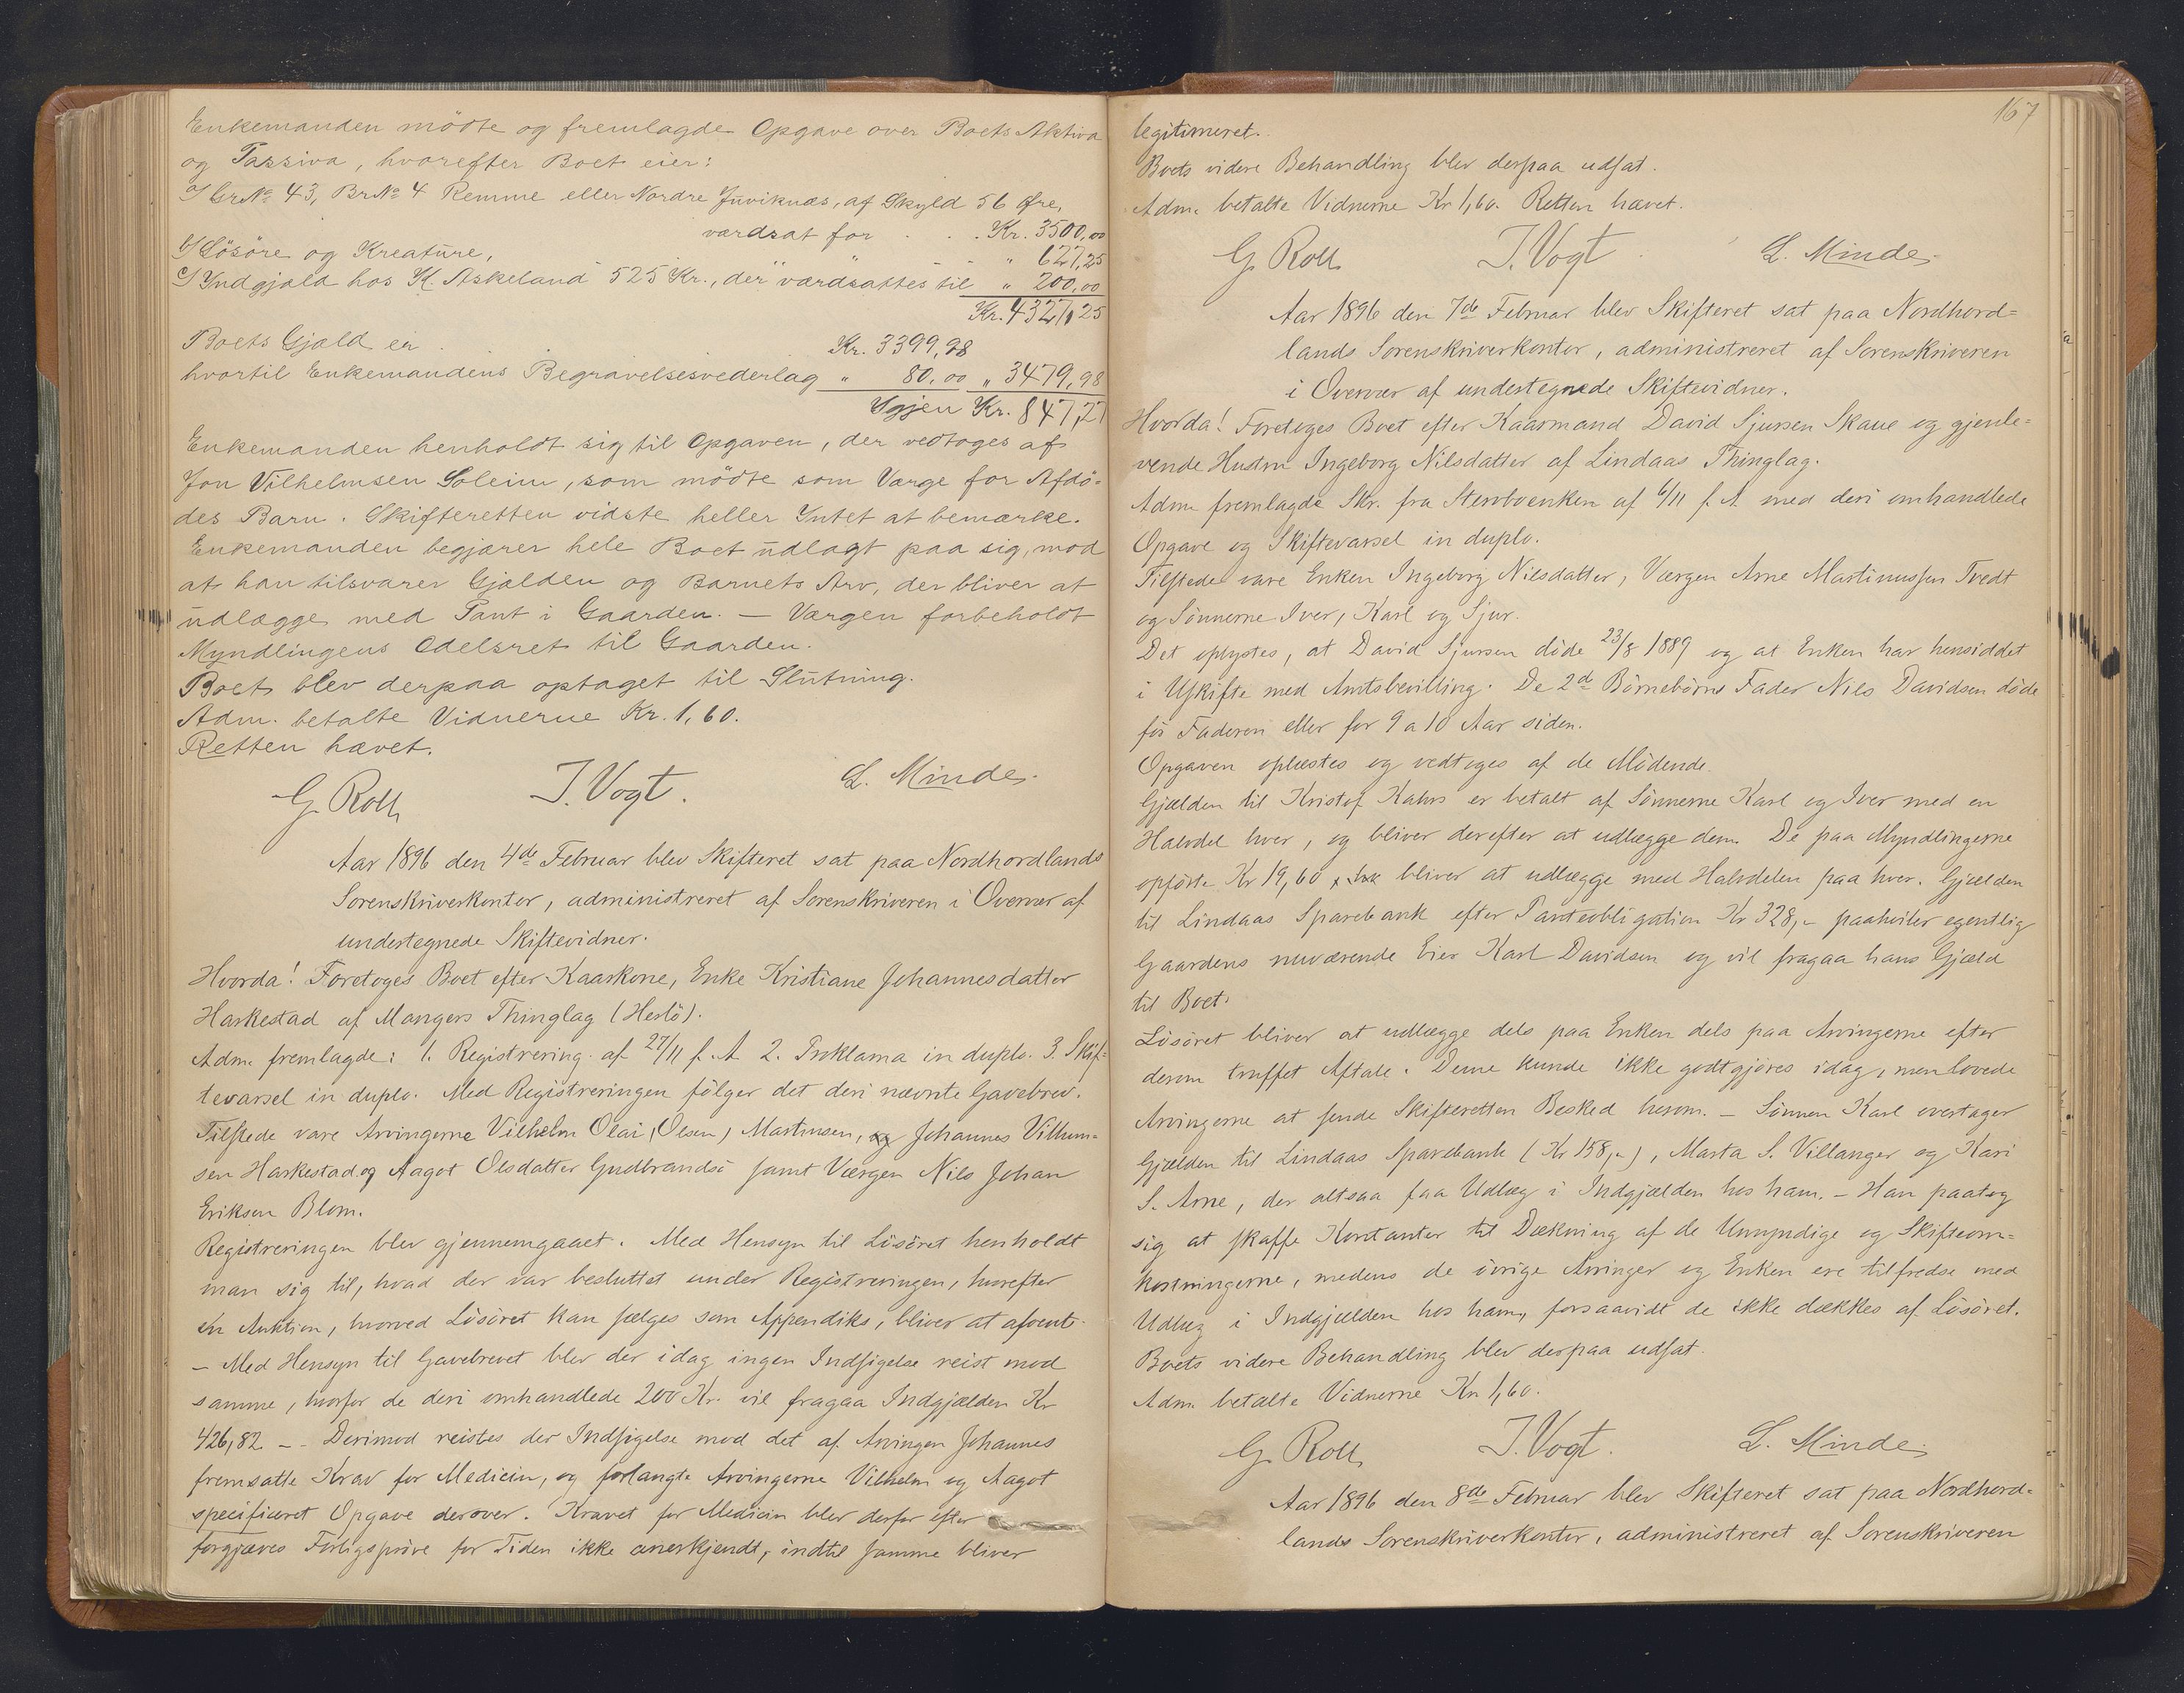 Enkemanden mödte og fremlagde Opgave over Boets Aktiva
og Passiva, hvorefter Boet eier:
GrNo 43, BrNo 4 Remme eller Nordre Juviknæs, af Skyld 56 Øre,
værdsat for . . Kr. 3500,00
Lösöre og Kreature, " 627,25
Indgjæld hos K. Askeland 525 Kr., der værdsattes til " 200,00
Kr. 4327,25
Boets Gjæld er . Kr. 3399,98
hvortil Enkemandens Begravelsesvederlag " 80,00 " 3479,98
Igjen Kr. 847,27
Enkemanden henholdt sig til Opgaven, der vedtoges af
Jon Vilhelmsen Soleim, som mödte som Værge for Afdö-
des Barn. Skifteretten vidste heller Intet at bemærke.
Enkemanden begjærer hele Boet udlagt paa sig, mod
at han tilsvarer Gjælden og Barnets Arv, der bliver at
udlægge med Pant i Gaarden. — Værgen forbeholdt
Myndlingens Odelsret til Gaarden.
Boet blev derpaa optaget til Slutning.
Adm. betalte Vidnerne Kr. 1,60.
Retten hævet.
G. Roll J. Vogt. L. Minde.
Aar 1896 den 4de Februar blev Skifteret sat paa Nordhordlands
Sorenskriverkontor, administreret af Sorenskriveren i Overvær af
undertegnede Skiftevidner.
Hvorda! Foretoges Boet efter Kaarkone, Enke Kristiane Johannesdatter
Harkestad af Mangers Thinglag (Herlö).
Adm. fremlagde: 1. Registrering af 27/11 f. A. 2. Proklama in duplo. 3. Skif-
tevarsel in duplo. Med Registreringen fölger det deri nævnte Gavebrev.
Tilstede vare Arvingerne Vilhelm Olai (Olsen) Martinsen, og Johannes Villum-
sen Harkestad og Aagot Olsdatter Gudbrandsö samt Værgen Nils Johan
Eriksen Blom.
Registreringen blev gjennemgaaet. Med Hensyn til Lösöret henholdt
man sig til, hvad der var besluttet under Registreringen, hvorefter
en Auktion, hvorved Lösöret kan sælges som Appendiks, bliver at afvente.
— Med Hensyn til Gavebrevet blev der idag ingen Indsigelse reist mod
samme, hvorfor de deri omhandlede 200 Kr. vil fragaa Indgjælden Kr
426,82. — Derimod reistes der Indsigelse mod det af Arvingen Johannes
fremsatte Krav for Medicin, og forlangte Arvingerne Vilhelm og Aagot
specificeret Opgave derover. Kravet for Medicin blev derfor efter
forgjæves Forligspröve for Tiden ikke anerkjendt, indtil samme bliver
167
legitimeret.
Boets videre Behandling blev derpaa udsat.
Adm. betalte Vidnerne Kr 1,60. Retten hævet.
G. Roll J. Vogt. L. Minde.
Aar 1896 den 7de Februar blev Skifteret sat paa Nordhord-
lands Sorenskriverkontor, administreret af Sorenskriveren
i Overvær af undertegnede Skiftevidner.
Hvorda! Foretoges Boet efter Kaarmand David Sjursen Skaue og gjenle-
vende Hustru Ingeborg Nilsdatter af Lindaas Thinglag.
Adm. fremlagde Skr. fra Stervboenken af 6/11 f. A. med deri omhandlede
Opgave og Skiftevarsel in duplo.
Tilstede vare Enken Ingeborg Nilsdatter, Værgen Arne Martinussen Tvedt
og Sönnerne Iver, Karl og Sjur.
Det oplystes, at David Sjursen döde 23/8 1889 og at Enken har hensiddet
i Uskifte med Amtsbevilling. De 2de Börnebörns Fader Nils Davidsen döde
för Faderen eller for 9 a 10 Aar siden.
Opgaven oplæstes og vedtoges af de Mödende.
Gjælden til Kristof Kahrs er betalt af Sönnerne Karl og Iver med en
Halvdel hver, og bliver derefter at udlægge dem. De paa Myndlingerne
opförte Kr 19,60 bliver at udlægge med Halvdelen paa hver. Gjælden
til Lindaas Sparebank efter Panteobligation Kr 328,- paahviler egentlig
Gaardens nuværende Eier Karl Davidsen og vil fragaa hans Gjæld
til Boet.
Lösöret bliver at udlægge dels paa Enken dels paa Arvingerne efter
derom truffet Aftale. Denne kunde ikke godtgjöres idag, men lovede
Arvingerne at sende Skifteretten Besked herom. — Sönnen Karl overtager
Gjælden til Lindaas Sparebank (Kr 158,-), Marta S. Villanger og Kari
S. Arne, der altsaa faa Udlæg i Indgjælden hos ham. — Han paatog
sig at skaffe Kontanter til Dækning af de Umyndige og Skifteom-
kostningerne, medens de övrige Arvinger og Enken ere tilfredse med
Udlæg i Indgjælden hos ham, forsaavidt de ikke dækkes af Lösöret.
Boets videre Behandling blev derpaa udsat.
Adm. betalte Vidnerne Kr 1,60.
G. Roll J. Vogt. L. Minde.
Aar 1896 den 8de Februar blev Skifteret sat paa Nordhord-
lands Sorenskriverkontor, administreret af Sorenskriveren